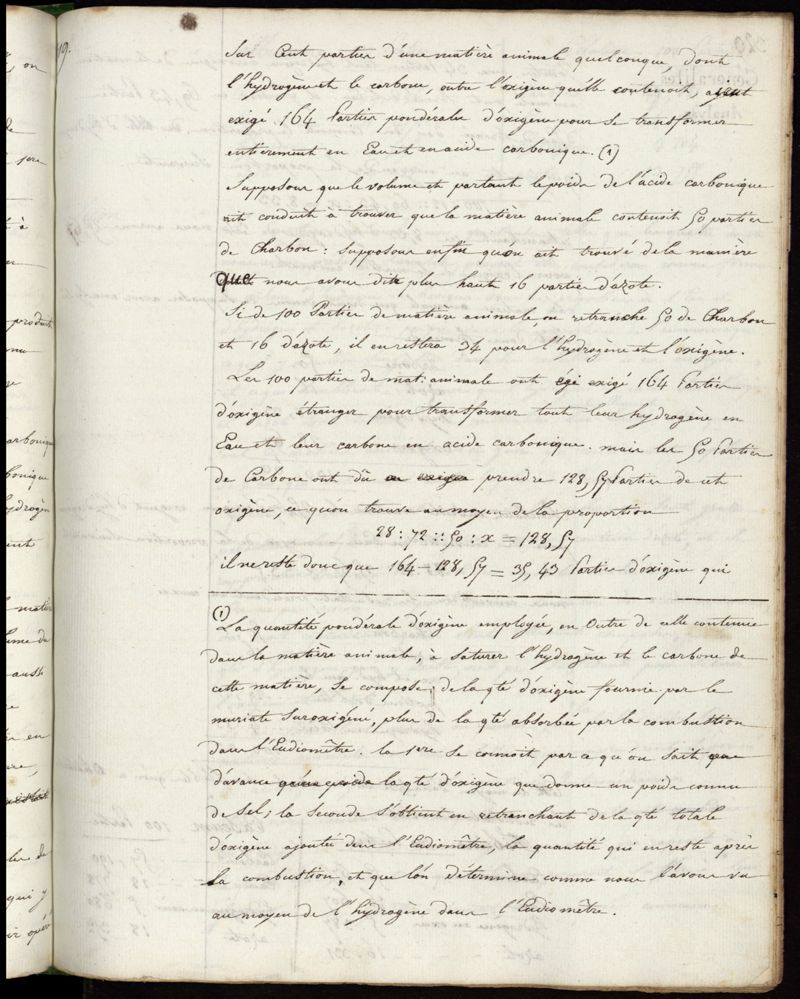 19.
Sur Cent parties d'une matière animale quelconque, dont
l'hydrogène et le carbone, outre l'oxigène qu'elle contenoit, aient
exigé 164 Parties pondérales d'oxigène pour se transformer
entièrement en Eau et en acide carbonique. (1)
Supposons que le volume et partant le poids de l'acide carbonique
ait conduit à trouver que la matière animale contenoit 50 parties
de Charbon : supposons enfin qu'on ait trouvé de la manière
que nous avons dite plus haut 16 parties d'azote.
Si de 100 Parties de matière animale, on retranche 50 de Charbon
et 16 d'azote, il en restera 34 pour l'hydrogène et l'oxigène.
Les 100 parties de mat: animale ont exigé 164 Parties
d'oxigène étranger pour transformer tout leur hydrogène en
Eau et leur carbone en acide carbonique. mais les 50 Parties
de Carbone ont dû prendre 128,57 Parties de cet
oxigène, ce qu'on trouve au moyen de la proportion
28 : 72 :: 50 : x = 128,57
il ne reste donc que 164 - 128,57 = 35,43 Parties d'oxigène qui
(1)
La quantité pondérale d'oxigène employée, en Outre de celle contenue
dans la matière animale, à saturer l'hydrogène et le carbone de
cette matière, se compose; de la qté d'oxigène fournie par le
muriate suroxigéné, plus de la qté absorbée par la combustion
dans l'Eudiomètre. la 1ere se connoît par ce qu'on sait
d'avance la qté d'oxigène que donne un poids connu
de sel; la seconde s'obtient en retranchant de la qté totale
d'oxigène ajoutée dans l'Eudiomètre, la quantité qui en reste après
la combustion, et que l'on détermine comme nous l'avons vu
au moyen de l'hydrogène dans l'Eudiomètre.